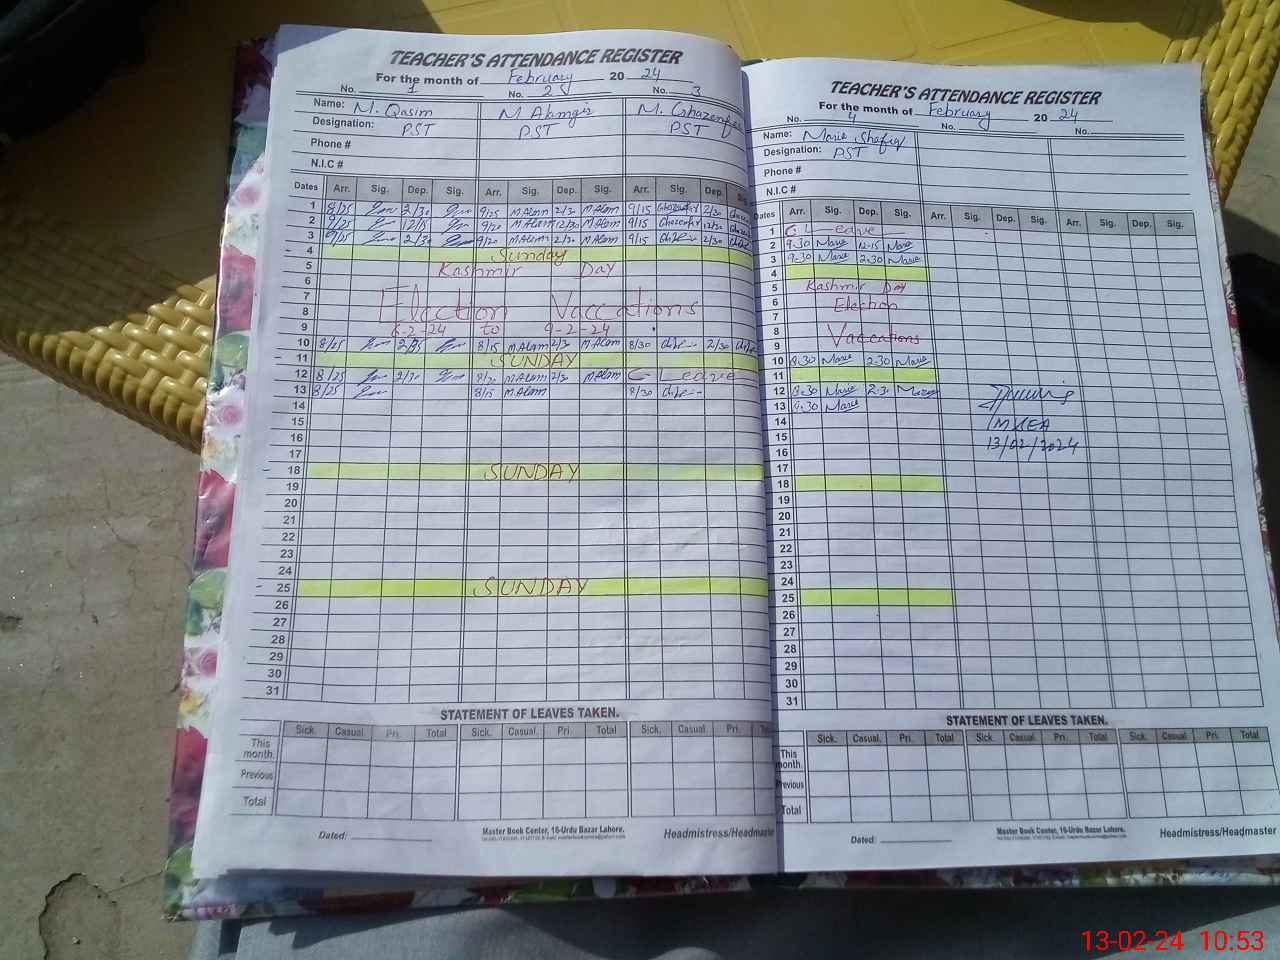 TEACHER'S ATTENDANCE REGISTER
For the month of February 20 24
No. 1 No. 2 No. 3
Name: M. Qasim M Alamgir
Designation: PST PST PST
Phone #
N.I.C #
Dates Arr. Sig. Dep. Sig. Arr. Sig. Dep. Sig. Arr. Sig. Dep.
1 8/25 2/30 9/25 M Alam 2/30 M Alam 9/15 2/30
2 9/25 12/15 9/20 M Alam 12/30 M Alam 9/15 12/30
3 9/25 2/30 9/20 M Alam 2/30 M Alam 9/15 2/30
4 Sunday
5 Kashmir Day
6
7
8 Election Vaccations
9 6-2-24 to 9-2-24
10 8/25 2/35 8/15 M Alam 2/30 M Alam 8/30 2/30
11 SUNDAY
12 8/25 2/30 8/20 M Alam 2/30 M Alam C Leave
13 8/25 8/15 M Alam 8/30
14
15
16
17
18 SUNDAY
19
20
21
22
23
24
25 SUNDAY
26
27
28
29
30
31
STATEMENT OF LEAVES TAKEN.
Sick. Casual. Pri. Total Sick. Casual. Pri. Total Sick. Casual. Pri.
This month.
Previous
Total
Dated:
Master Book Center, 16-Urdu Bazar Lahore.
Headmistress/Headmaster
TEACHER'S ATTENDANCE REGISTER
For the month of February 20 24
No. 4 No. No.
Name:
Designation: PST
Phone #
N.I.C #
Dates Arr. Sig. Dep. Sig. Arr. Sig. Dep. Sig. Arr. Sig. Dep. Sig.
1 C Leave
2 9.30 12-15
3 9.30 2.30
4
5 Kashmir Day
6 Election
7
8 Vaccations
9
10 8.30 2.30
11
12 8.30 2.30
13 8.30
14
15
16
13/02/2024
17
18
19
20
21
22
23
24
25
26
27
28
29
30
31
STATEMENT OF LEAVES TAKEN.
Sick. Casual. Pri. Total Sick. Casual. Pri. Total Sick. Casual. Pri. Total
This month.
Previous
Total
Dated:
Master Book Center, 16-Urdu Bazar Lahore.
Headmistress/Headmaster
13-02-24 10:53